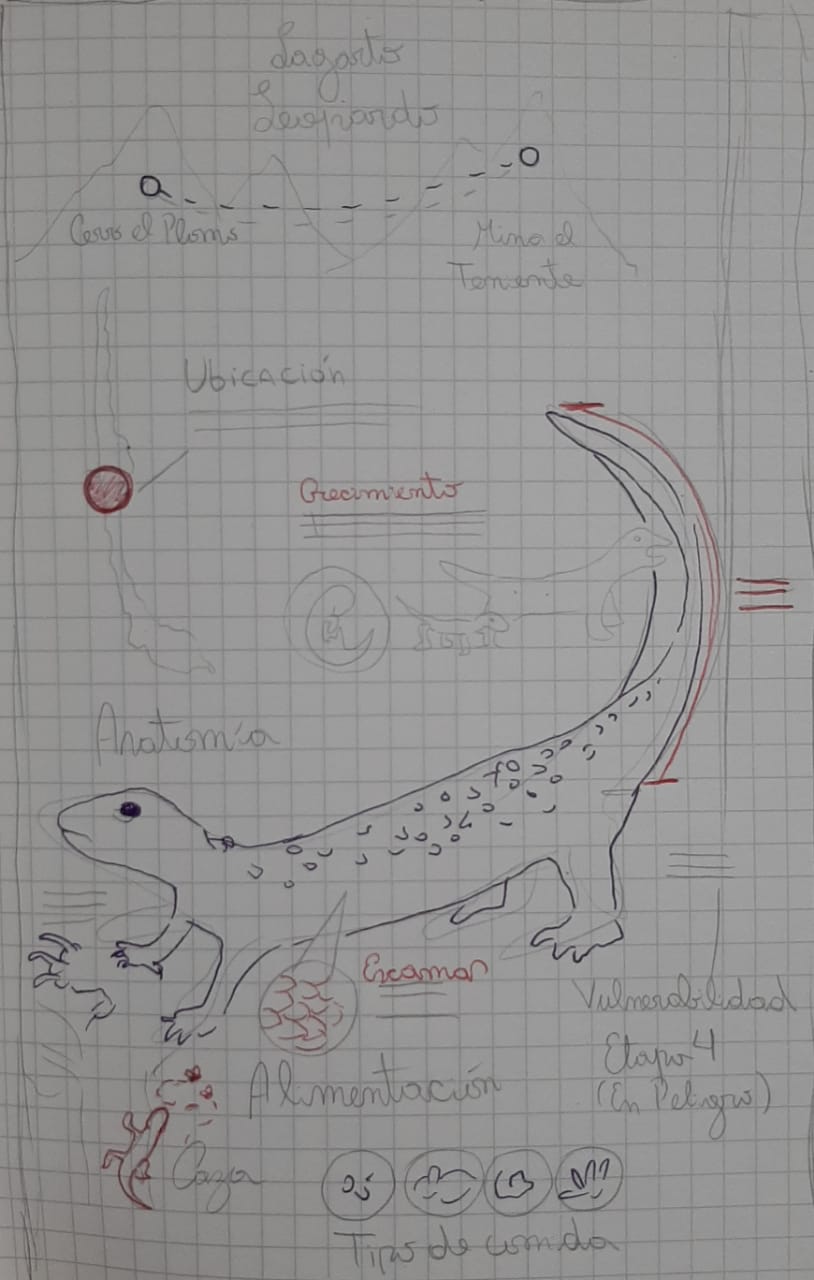 Lagarto
Leopardo
Cerro el Plomo
Mina el
Teniente
Ubicación
Crecimiento
Anatomía
Escamas
Vulnerabilidad
Etapa 4
(En Peligro)
Alimentación
Caza
Tipo de comida